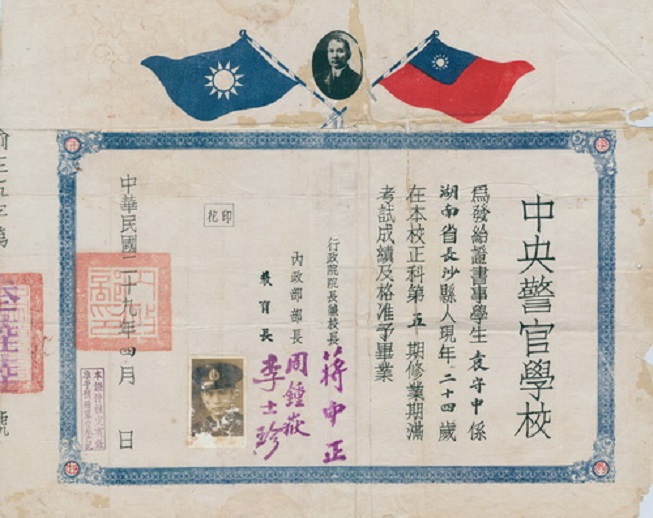 中央警官學校
為發給證書事學生袁守中係
湖南省長沙縣人現年二十四歲
在本校正科第五期修業期滿
考試成績及格准予畢業
行政院院長兼校長 蔣中正
內政部部長 周鍾嶽
教育長 李士珍
印花
中華民國二十九年四月 日
號